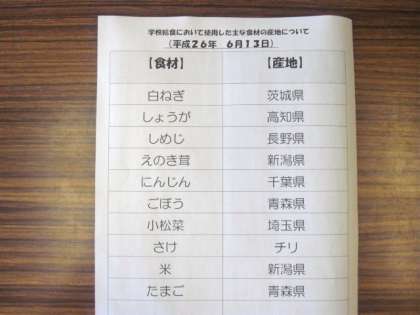 学校給食において使用した主な食材の産地について
（平成２６年　６月１３日）
【食材】　【産地】
白ねぎ　茨城県
しょうが　高知県
しめじ　長野県
えのき茸　新潟県
にんじん　千葉県
ごぼう　青森県
小松菜　埼玉県
さけ　チリ
米　新潟県
たまご　青森県